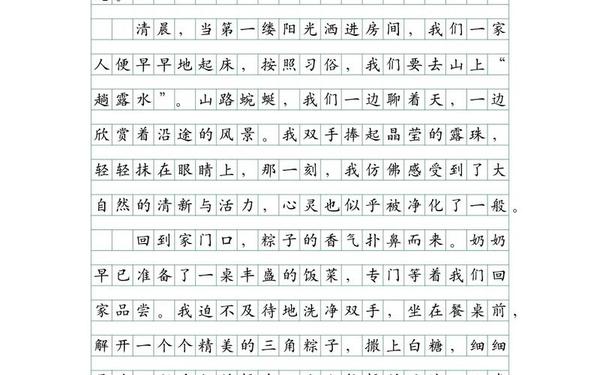 清晨，当第一缕阳光洒进房间，我们一家
人便早早地起床，按照习俗，我们要去山上“
趟露水”。山路蜿蜒，我们一边聊着天，一边
欣赏着沿途的风景。我双手捧起晶莹的露珠，
轻轻抹在眼睛上，那一刻，我仿佛感受到了大
自然的清新与活力，心灵也似乎被净化了一般。
回到家门口，粽子的香气扑鼻而来。奶奶
早已准备了一桌丰盛的饭菜，专门等着我们回
家品尝。我迫不及待地洗净双手，坐在餐桌前，
解开一个个精美的三角粽子，撒上白糖，细细